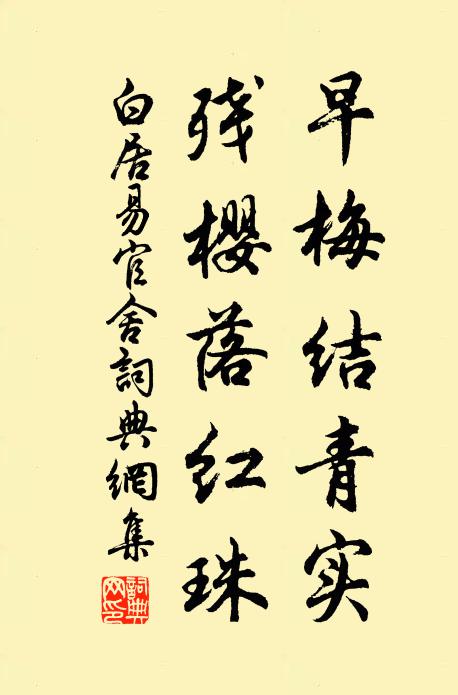 早梅结青实
残櫻落红珠
白居易官舍詞典網集
詞典网印